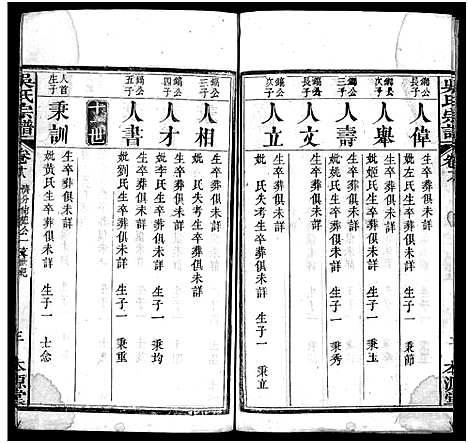 吳氏宗譜
人偉
生卒葬俱未詳
妣左氏生卒葬俱未詳 生子一 秉節
次子
人舉
生卒葬俱未詳
妣姬氏生卒葬俱未詳 生子一 秉玉
人壽
生卒葬俱未詳
妣姚氏生卒葬俱未詳 生子一 秉秀
長子
人文
生卒葬俱未詳
次子
人立
生卒葬俱未詳
妣 氏失考生卒葬俱未詳 生子一 秉立
三子
人相
生卒葬俱未詳
妣 氏失考生卒葬俱未詳
四子
人才
生卒葬俱未詳
妣李氏生卒葬俱未詳 生子一 秉均
五子
人書
生卒葬俱未詳
妣劉氏生卒葬俱未詳 生子一 秉重
十世
人首生子
秉訓
生卒葬俱未詳
妣黃氏生卒葬俱未詳 生子一 士念
吳氏宗譜
本源堂